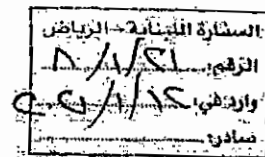 السفارة اللبنانية - الرياض
الرقم: ٨/١/٢١
وارد في:
صادر: